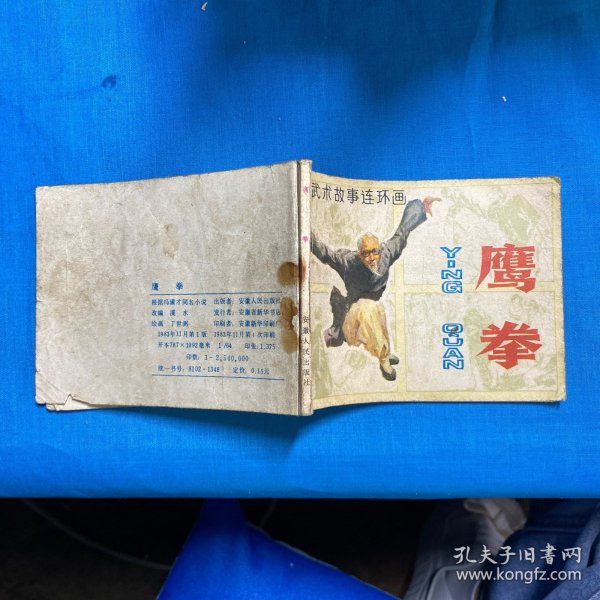 武术故事连环画
鹰
拳
YING QUAN
安徽人民出版社
鹰 拳
出版者：安徽人民出版社
改编 溪水 发行者：安徽省新华书店
绘画 丁世弼 印刷者：安徽新华印刷厂
1983年11月第1版 1983年11月第1次印刷
开本787×1092毫米 1/64 印张：1.375
印数：1-2,540,000
统一书号：8102·1348 定价：0.15元
孔夫子旧书网
www.kongfz.com